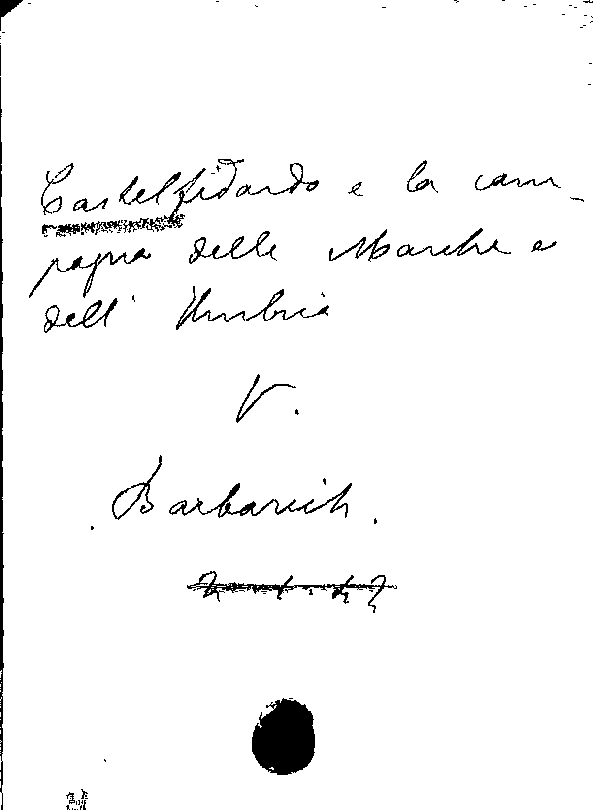 Castelfidardo e la cam-
pagna delle Marche e
dell'Umbria
V.
Barbarich.